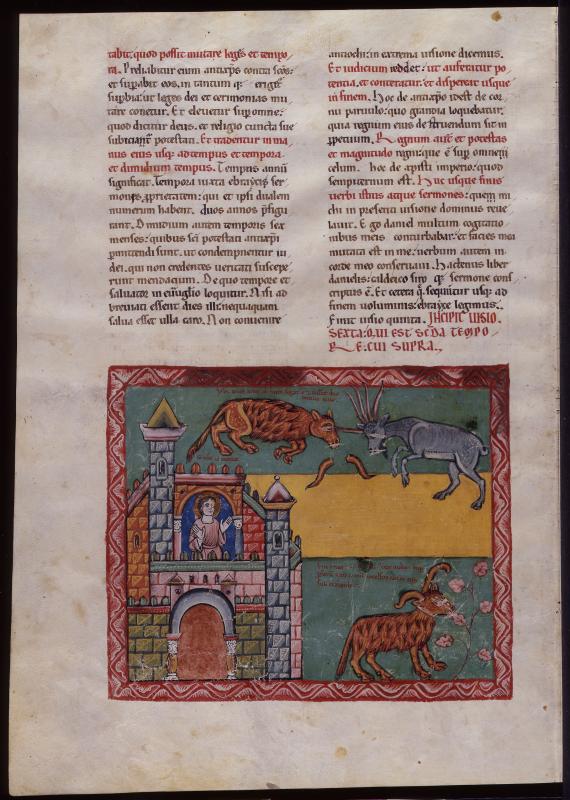 tabit: quod possit mutare leges et tempo
ra. Preliabitur enim antixps contra scōs:
et supabit eos, in tantum q; eriget
supbia: ut leges dei et cerimonias mu
tare conetur. Et elevetur sup omne:
quod dicitur deus. et religio cuncta sue
subiciant potestati. Et tradentur in ma
nus eius usq; ad tempus et tempora
et dimidium tempus. Tempus annū
significat. Tempora iuxta ebraycis ser
monis pprietatem: qui et ipsi dualem
numerum habent. duos annos pfigu
rant. Dimidium autem temporis sex
menses: quibus sci potestati antixpi
pmittendi sunt. ut condempnentur iu
dei. qui non credentes veritati suscepe
runt mendacium. De quo tempore et
salvator in evuglio loquitur. Nisi ad
breviati essent dies illi: nequaquam
salva esset ulla caro. Non convenire
antiochi: in extrema visione dicemus.
Et iudicium sedebit: ut auferatur po
tentia. et conteratur. et dispereat usque
in finem. Hoc de antixpo idest de cor
nu parvulo. quod grandia loquebatur.
quia regnum eius destruendum sit in
ppetuum. Regnum aut et potestas
et magnitudo regni: que ē sup omnem
celum. hoc de xpisti imperio: quod
sempiternum est. Huc usque finis
verbi istius atque sermones: quem mi
chi in presenti visione dominus reve
lavit. Ego daniel multum cogitatio
nibus meis conturbabar: et facies mea
mutata est in me: verbum autem in
corde meo conservavi. Hactenus liber
danielis: caldeico siro q; sermone cons
criptus ē. Et cetera q; sequntur usq; ad
finem voluminis: ebrayce legimus.
Finit visio quinta. INCIPIT VISIO
SEXTA: